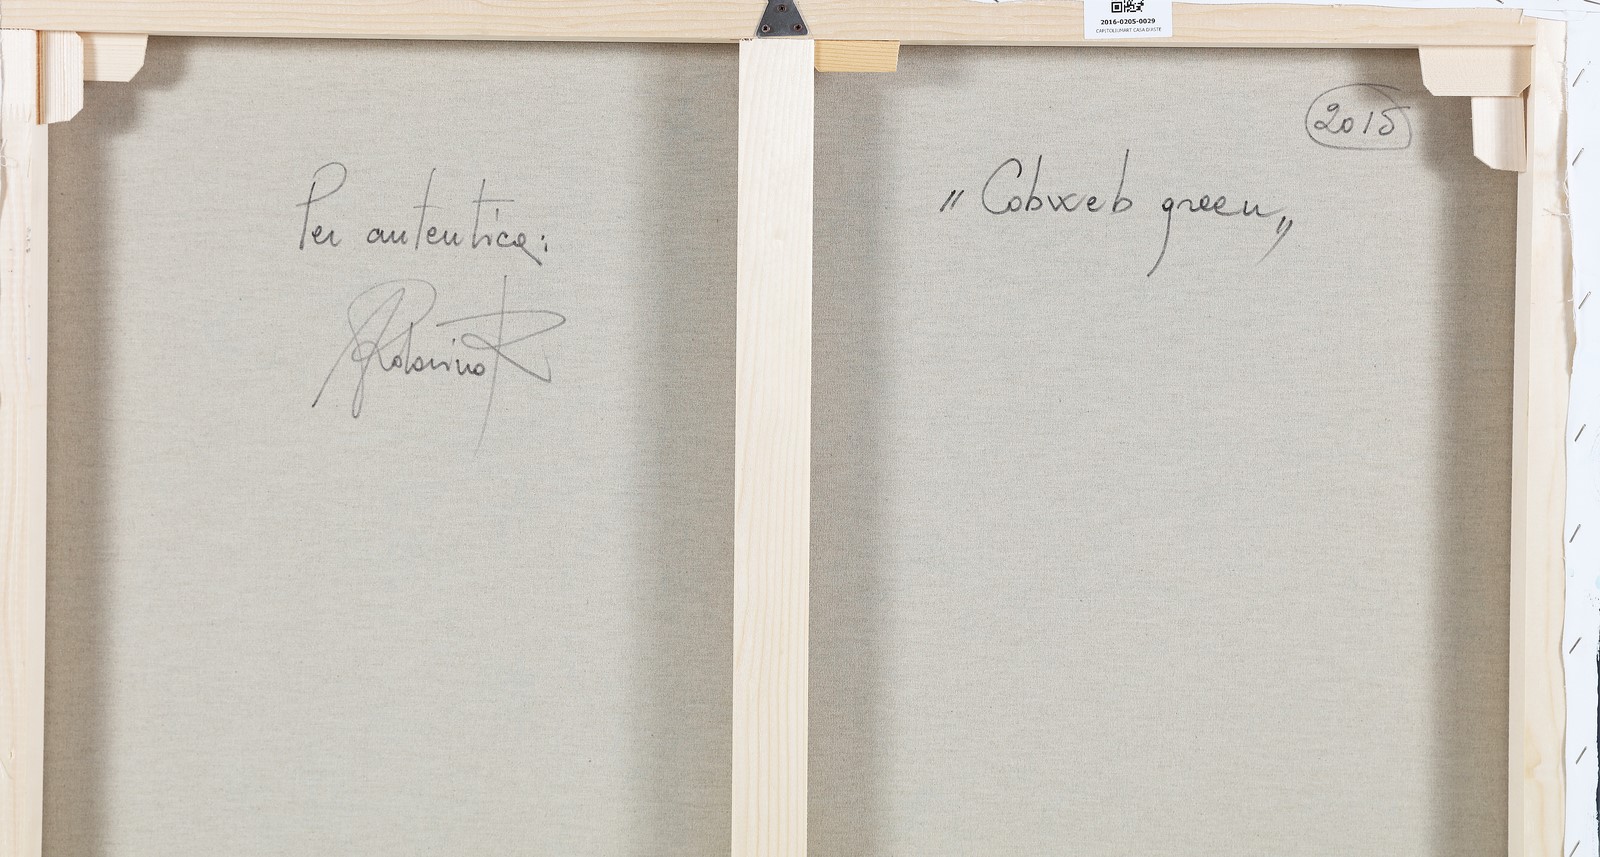 2016-0205-0029
CAPITOLIUMART CASA D'ASTE
2015
Per autentica:
„ Cobweb green „